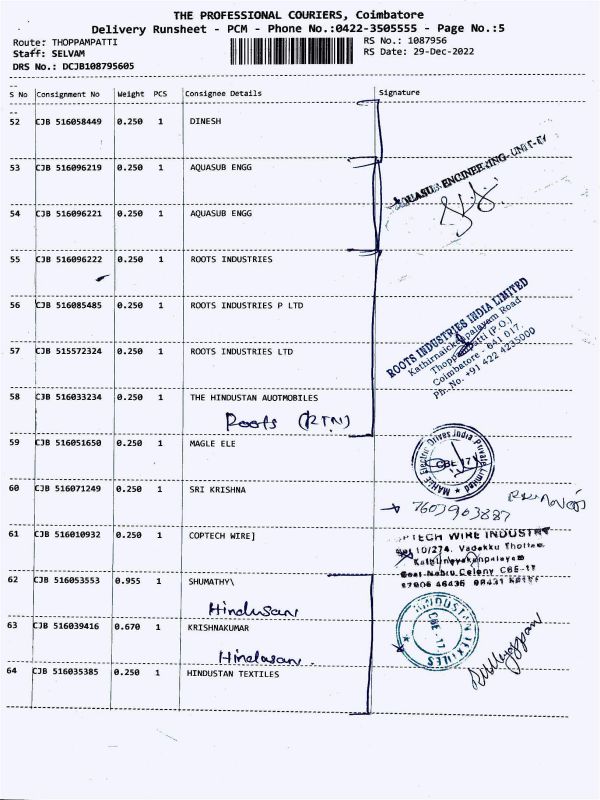 THE PROFESSIONAL COURIERS, Coimbatore
Delivery Runsheet - PCM - Phone No.:0422-3505555 - Page No.:5
Route: THOPPAMPATTI
RS No.: 1087956
Staff: SELVAM
RS Date: 29-Dec-2022
DRS No.: DCJB108795605
S No Consignment No Weight PCS Consignee Details Signature
52 CJB 516058449 0.250 1 DINESH
53 CJB 516096219 0.250 1 AQUASUB ENGG
AQUASUB ENGINEERING-UNIT-
54 CJB 516096221 0.250 1 AQUASUB ENGG
55 CJB 516096222 0.250 1 ROOTS INDUSTRIES
56 CJB 516085485 0.250 1 ROOTS INDUSTRIES P LTD
ROOTS INDUSTRIES INDIA LIMITED
Kathirnaickenpalayam Road
Thoppampatti (P.O.)
Coimbatore - 641 017.
Ph. No. +91 422 4235000
57 CJB 515572324 0.250 1 ROOTS INDUSTRIES LTD
58 CJB 516033234 0.250 1 THE HINDUSTAN AUOTMOBILES
Roots (RTN)
59 CJB 516051650 0.250 1 MAGLE ELE
MAHLE Electric Drives India Private Limited
CBE 17
60 CJB 516071249 0.250 1 SRI KRISHNA
7603903887
61 CJB 516010932 0.250 1 COPTECH WIRE]
PTECH WIRE INDUSTR
10/274, Vadakku Thottam
Kathirnayakenpalayam
Nehru Colony CBE-17
62 CJB 516053553 0.955 1 SHUMATHY\
Hindusan
63 CJB 516039416 0.670 1 KRISHNAKUMAR
HINDUSTAN TEXTILES
CBE-17
Hindusan.
64 CJB 516035385 0.250 1 HINDUSTAN TEXTILES